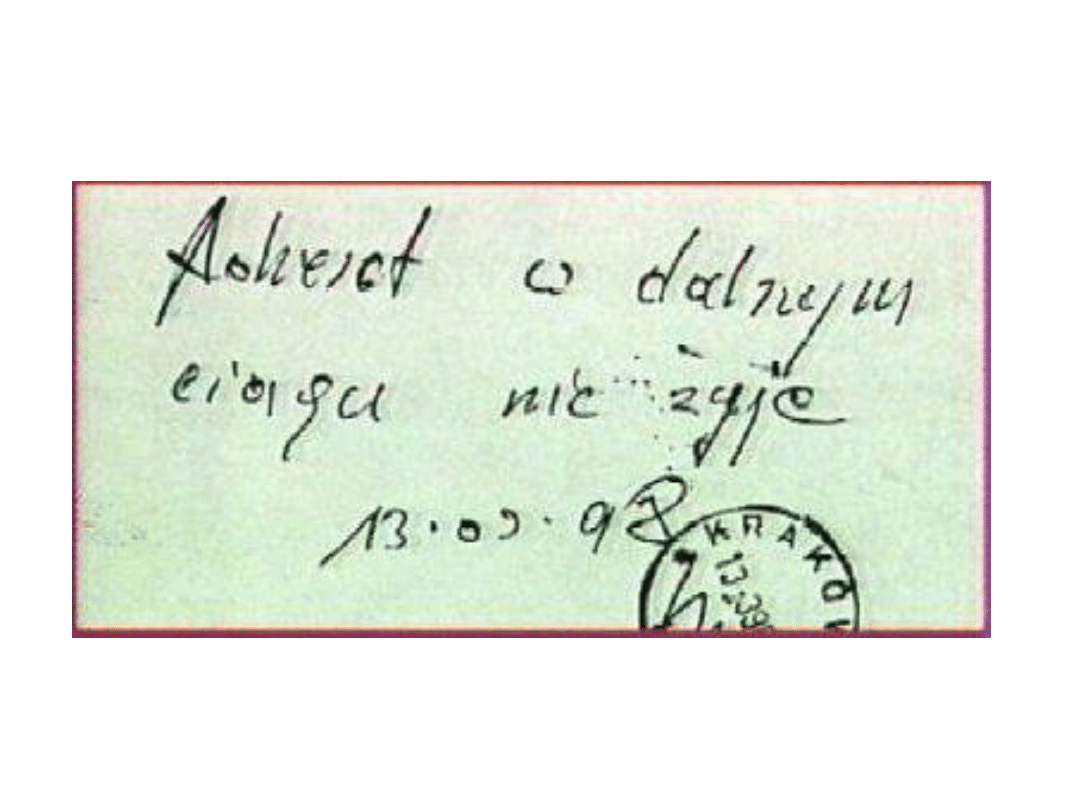 Adresat w dalnym
ciągu nie żyje
13.03.98
KRAKÓW